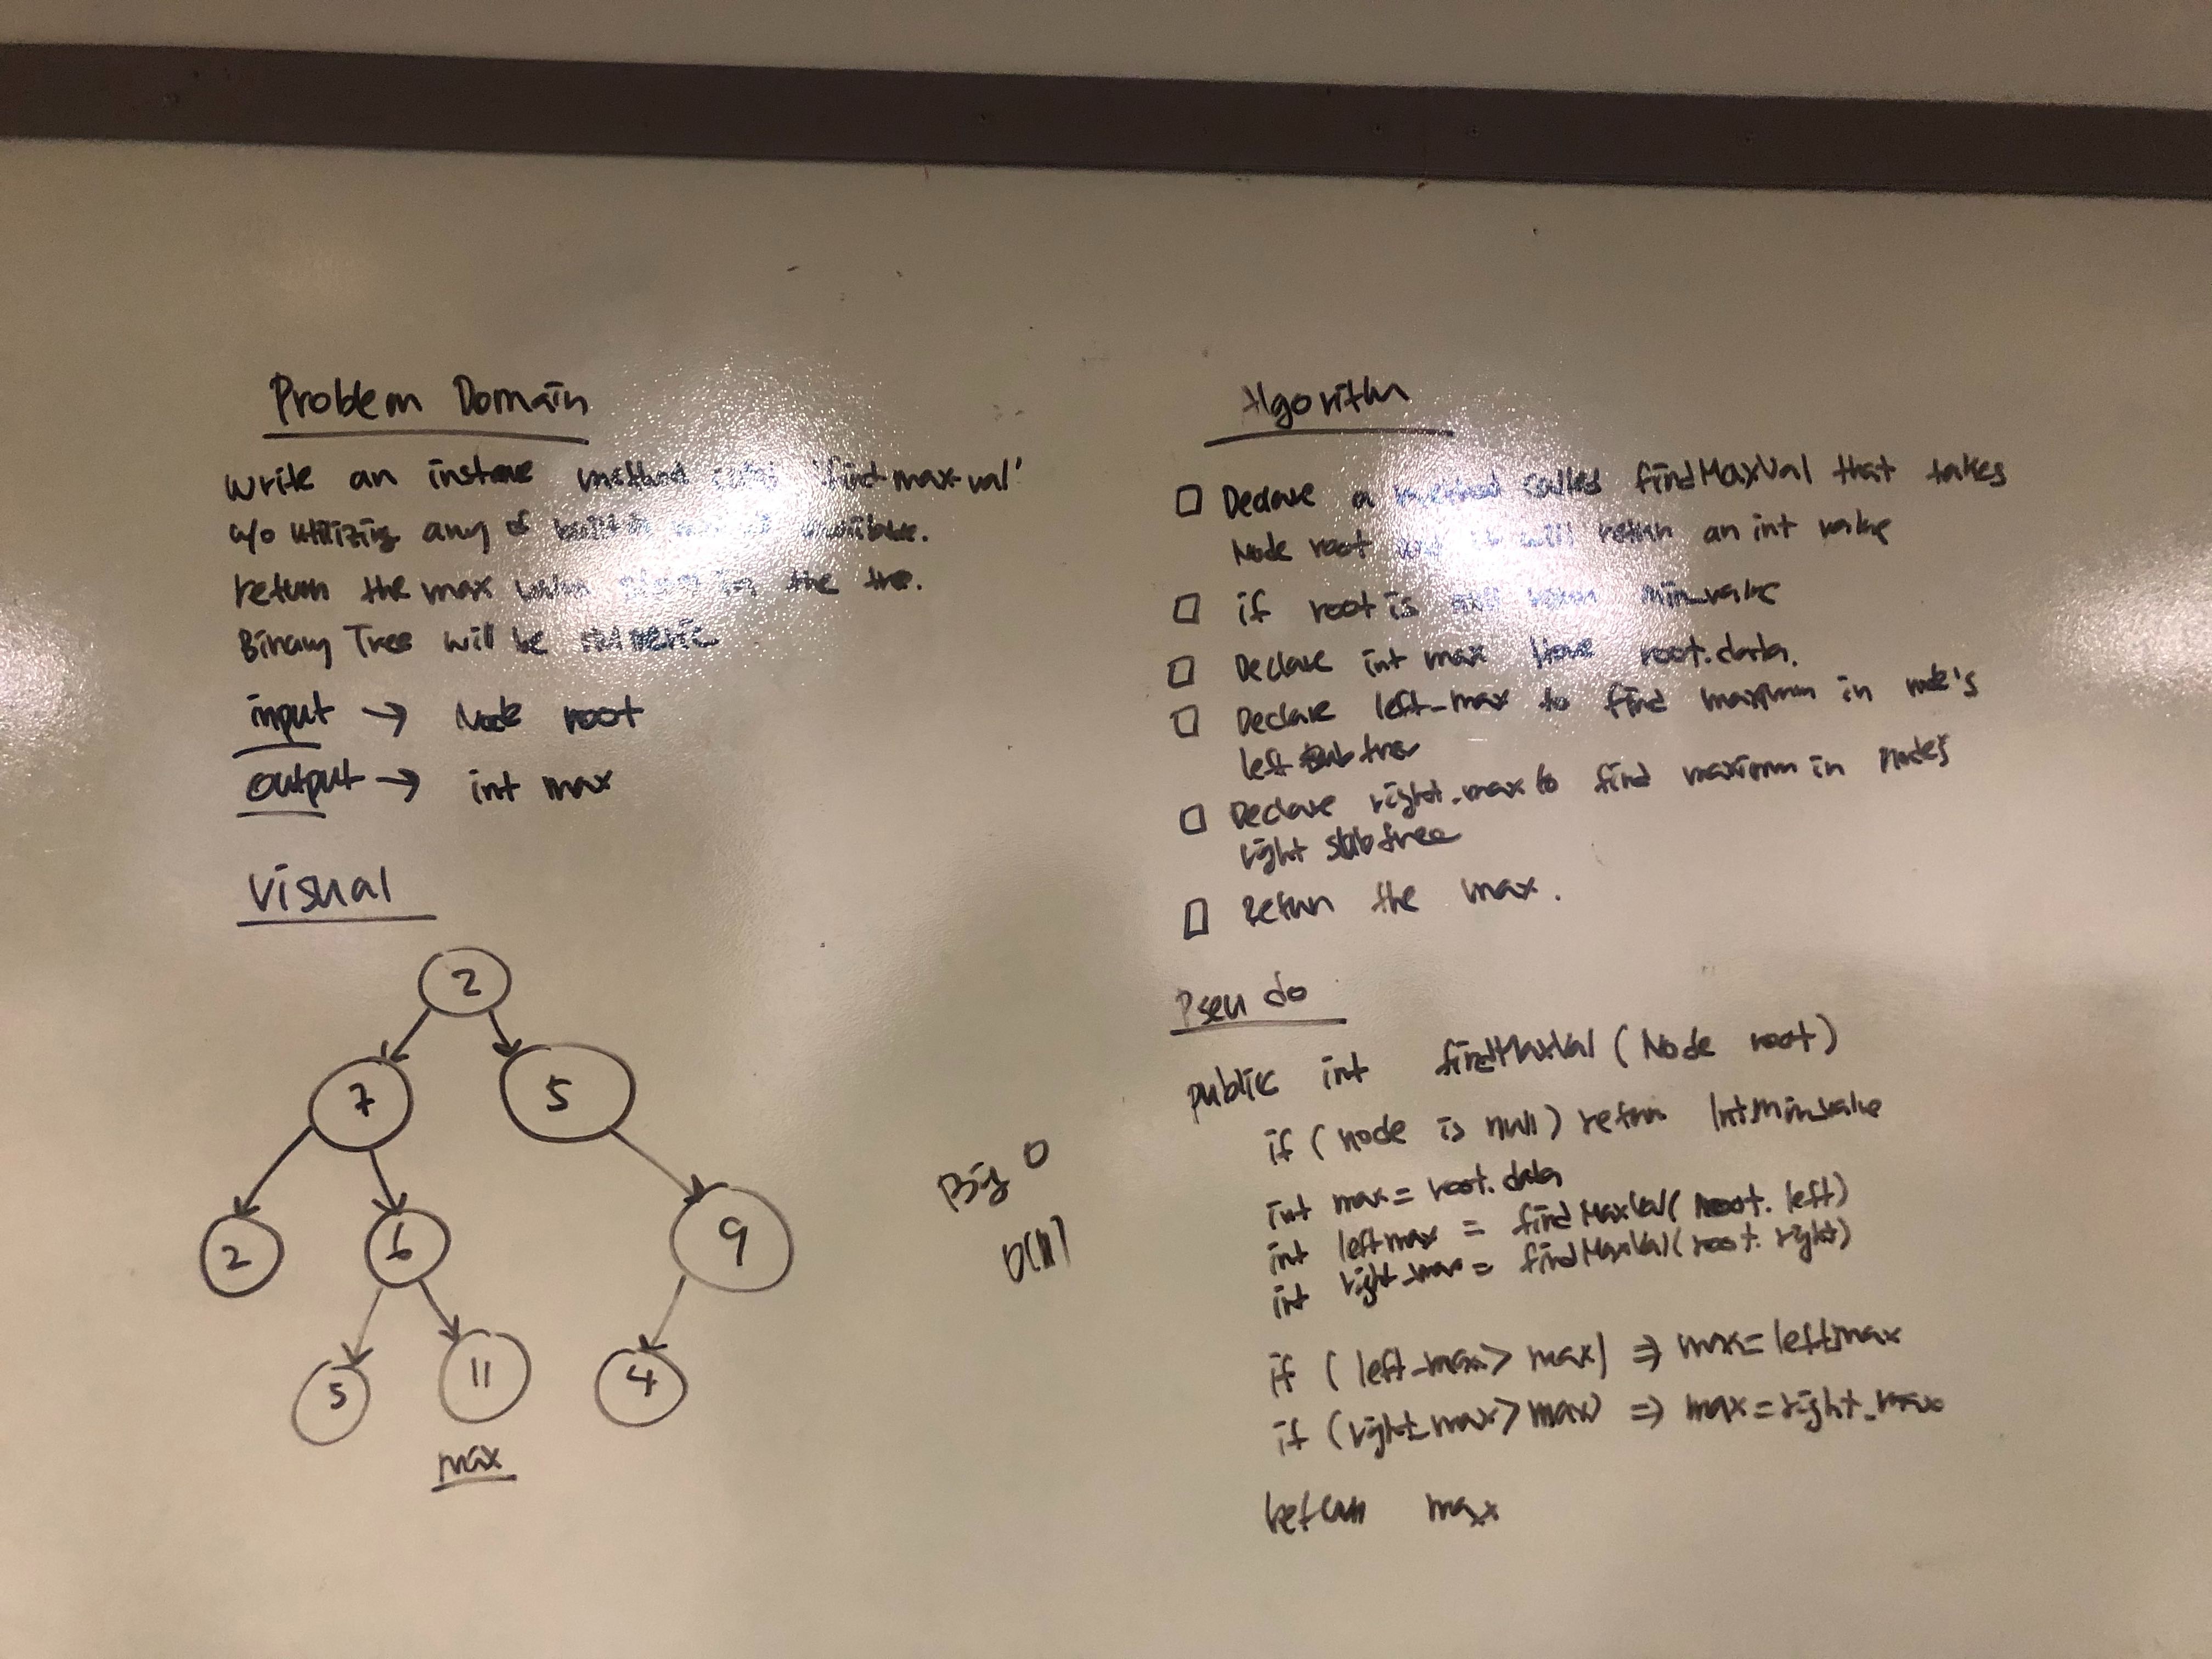 Problem Domain
Write an instance method 'find-max-val'
w/o utilizing any of
return the max value in the tree.
Binary Tree will be numeric
input → Node root
output → int max
Visual
2
7 5
2 6 9
5 11 4
max
Big O
O(n)
Algorithm
Declare a method called findMaxVal that takes
Node root and it will return an int value
if root is null return min_value
Declare int max root.data.
Declare left_max to find maximum in node's
left subtree
Declare right_max to find maximum in node's
right subtree
Return the max.
Pseudo
public int findMaxVal (Node root)
if (node is null) return Int.Min_value
int max = root.data
int leftmax = findMaxVal( root. left)
int right_max = findMaxVal(root. right)
if (left_max > max) ⇒ max = leftmax
if (right_max > max) ⇒ max = right_max
return max